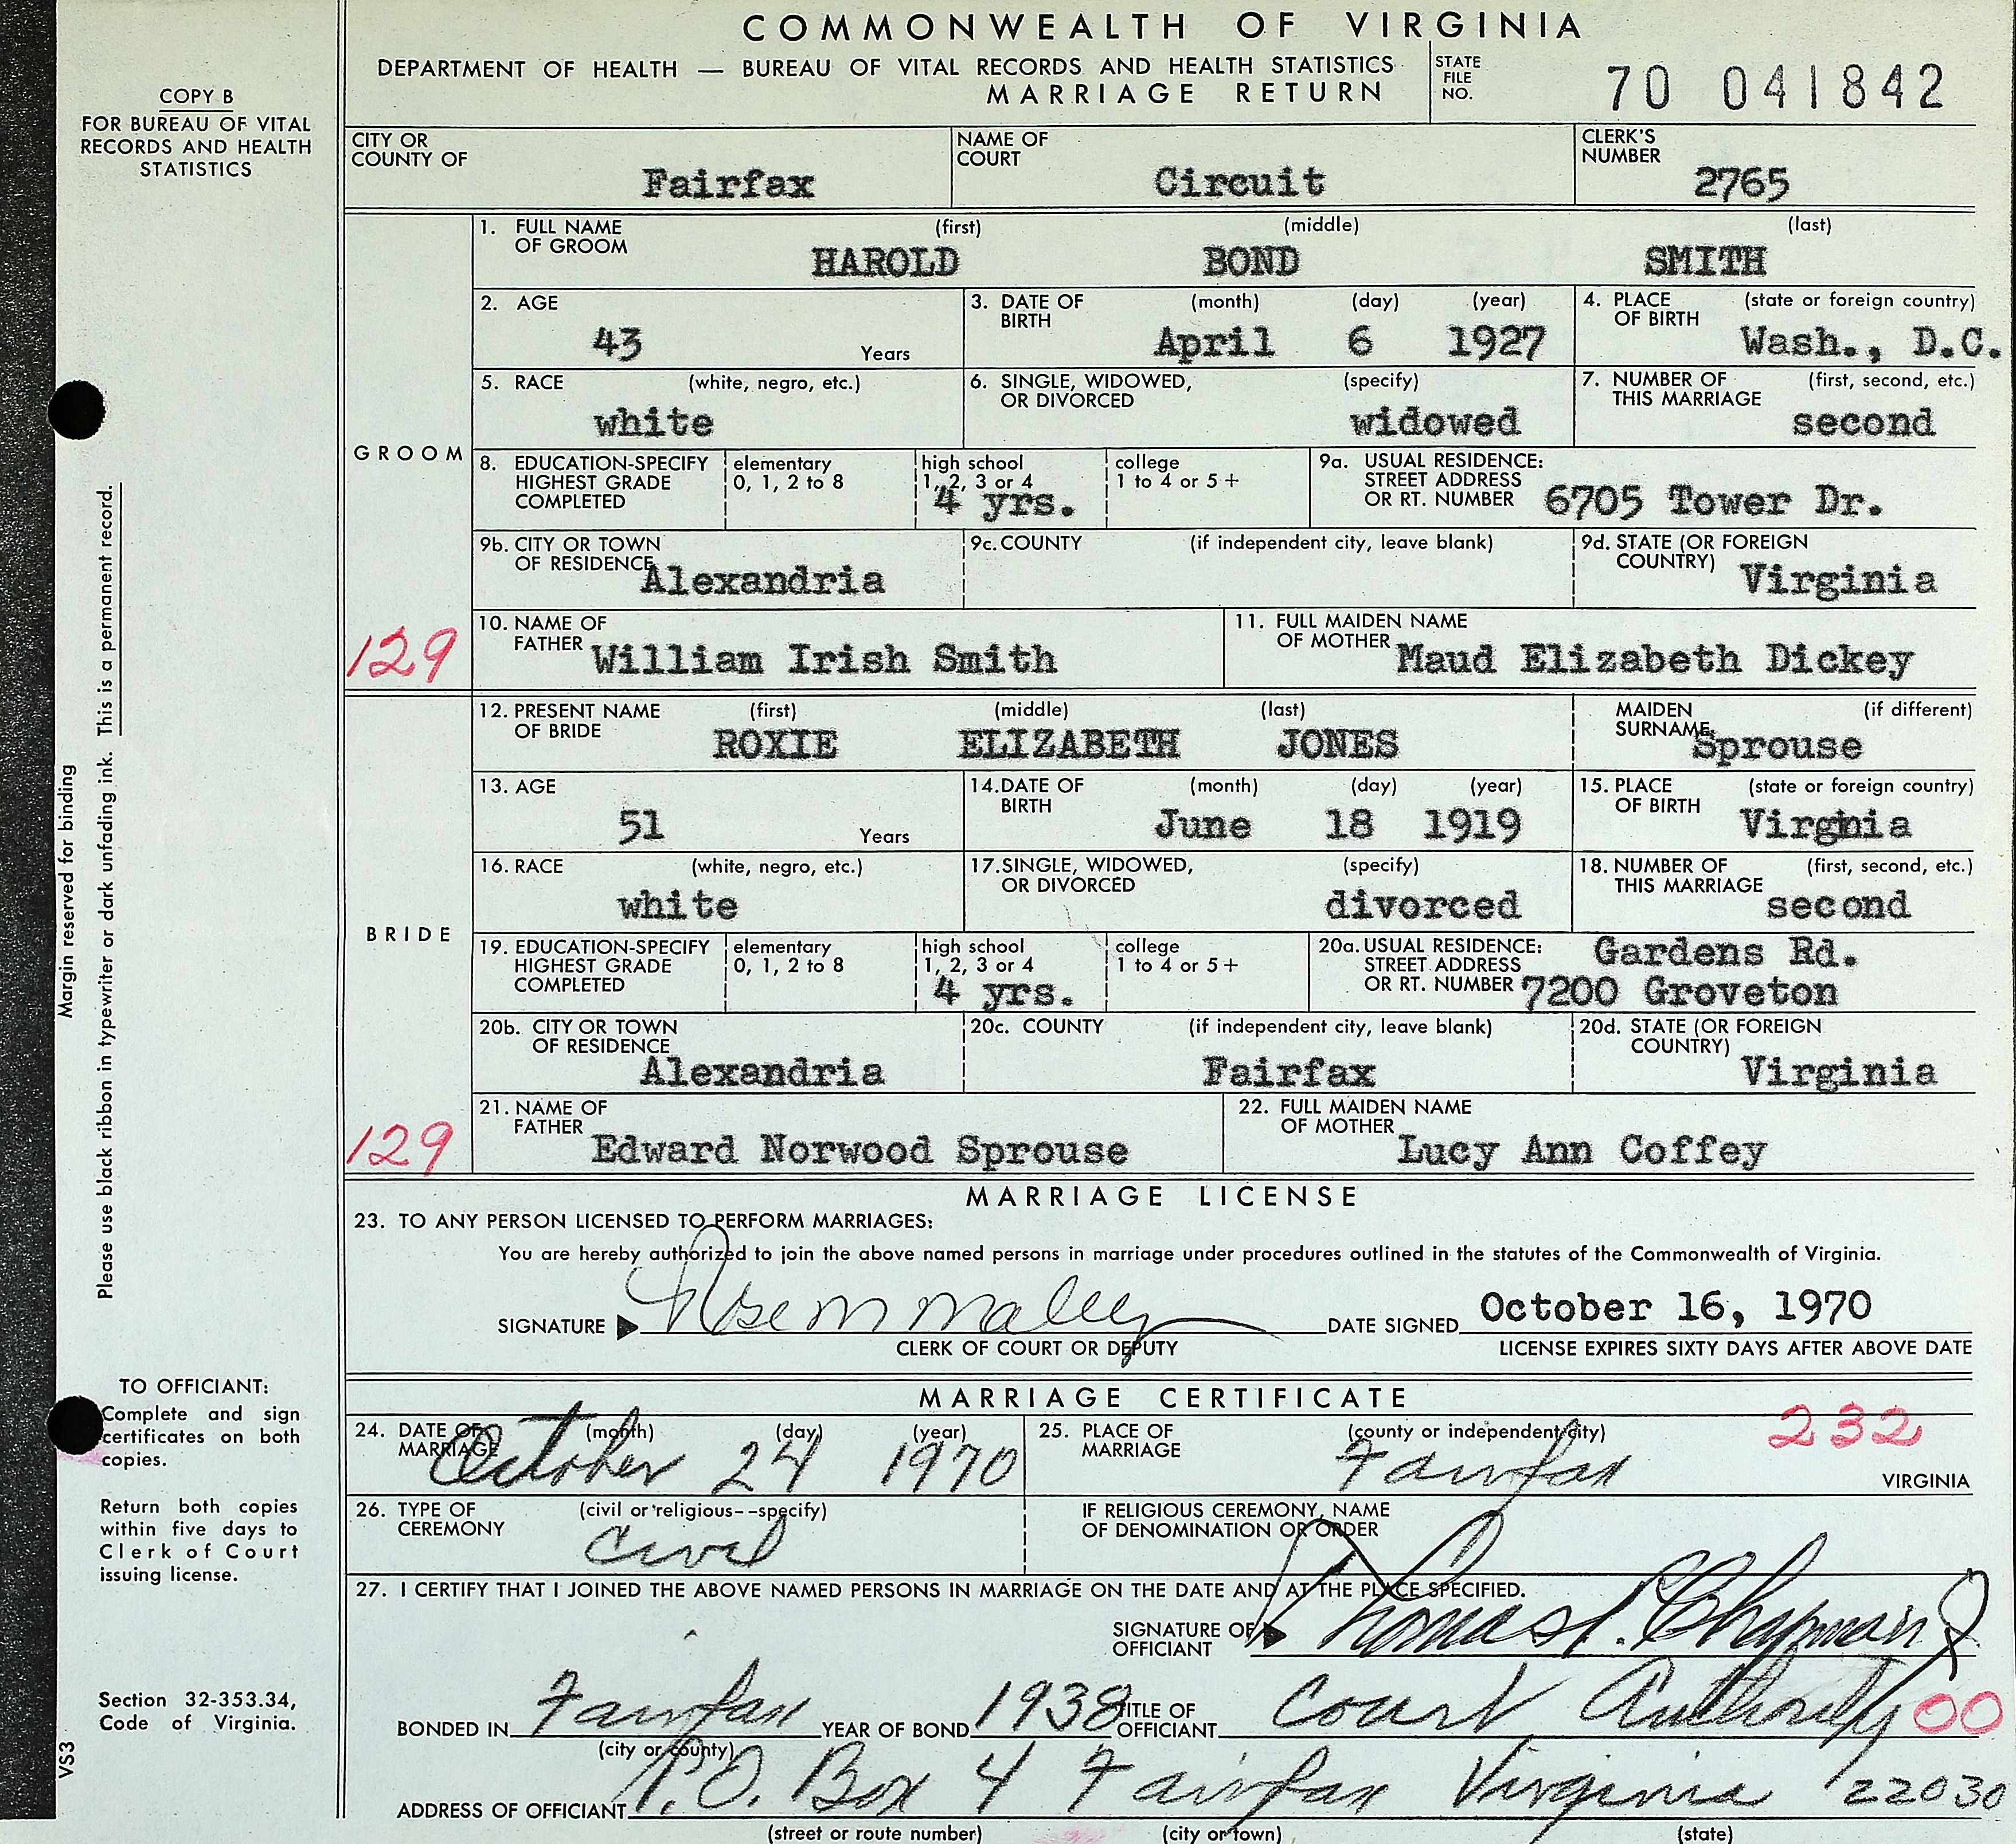 COMMONWEALTH OF VIRGINIA
DEPARTMENT OF HEALTH — BUREAU OF VITAL RECORDS AND HEALTH STATISTICS
MARRIAGE RETURN
STATE FILE NO. 70 041842
COPY B
FOR BUREAU OF VITAL
RECORDS AND HEALTH
STATISTICS
CITY OR COUNTY OF Fairfax NAME OF COURT Circuit CLERK'S NUMBER 2765
GROOM
1. FULL NAME OF GROOM (first) HAROLD (middle) BOND (last) SMITH
2. AGE 43 Years 3. DATE OF BIRTH (month) April (day) 6 (year) 1927 4. PLACE OF BIRTH (state or foreign country) Wash., D.C.
5. RACE (white, negro, etc.) white 6. SINGLE, WIDOWED, OR DIVORCED (specify) widowed 7. NUMBER OF THIS MARRIAGE (first, second, etc.) second
8. EDUCATION-SPECIFY HIGHEST GRADE COMPLETED elementary 0, 1, 2 to 8 high school 1, 2, 3 or 4 4 yrs. college 1 to 4 or 5+ 9a. USUAL RESIDENCE: STREET ADDRESS OR RT. NUMBER 6705 Tower Dr.
9b. CITY OR TOWN OF RESIDENCE Alexandria 9c. COUNTY (if independent city, leave blank) 9d. STATE (OR FOREIGN COUNTRY) Virginia
129
10. NAME OF FATHER William Irish Smith 11. FULL MAIDEN NAME OF MOTHER Maud Elizabeth Dickey
BRIDE
12. PRESENT NAME OF BRIDE (first) ROXIE (middle) ELIZABETH (last) JONES MAIDEN SURNAME (if different) Sprouse
13. AGE 51 Years 14. DATE OF BIRTH (month) June (day) 18 (year) 1919 15. PLACE OF BIRTH (state or foreign country) Virginia
16. RACE (white, negro, etc.) white 17. SINGLE, WIDOWED, OR DIVORCED (specify) divorced 18. NUMBER OF THIS MARRIAGE (first, second, etc.) second
19. EDUCATION-SPECIFY HIGHEST GRADE COMPLETED elementary 0, 1, 2 to 8 high school 1, 2, 3 or 4 4 yrs. college 1 to 4 or 5+ 20a. USUAL RESIDENCE: STREET ADDRESS OR RT. NUMBER Gardens Rd. 7200 Groveton
20b. CITY OR TOWN OF RESIDENCE Alexandria 20c. COUNTY (if independent city, leave blank) Fairfax 20d. STATE (OR FOREIGN COUNTRY) Virginia
129
21. NAME OF FATHER Edward Norwood Sprouse 22. FULL MAIDEN NAME OF MOTHER Lucy Ann Coffey
MARRIAGE LICENSE
23. TO ANY PERSON LICENSED TO PERFORM MARRIAGES:
You are hereby authorized to join the above named persons in marriage under procedures outlined in the statutes of the Commonwealth of Virginia.
SIGNATURE Rose M Maley DATE SIGNED October 16, 1970
CLERK OF COURT OR DEPUTY LICENSE EXPIRES SIXTY DAYS AFTER ABOVE DATE
MARRIAGE CERTIFICATE
24. DATE OF MARRIAGE (month) October (day) 24 (year) 1970 25. PLACE OF MARRIAGE (county or independent city) Fairfax 232 VIRGINIA
26. TYPE OF CEREMONY (civil or religious--specify) Civil IF RELIGIOUS CEREMONY, NAME OF DENOMINATION OR ORDER
27. I CERTIFY THAT I JOINED THE ABOVE NAMED PERSONS IN MARRIAGE ON THE DATE AND AT THE PLACE SPECIFIED.
SIGNATURE OF OFFICIANT Thomas P. Chapman Jr
BONDED IN Fairfax YEAR OF BOND 1938 TITLE OF OFFICIANT Court Authority 00
(city or county)
ADDRESS OF OFFICIANT P.O. Box 4 Fairfax Virginia 22030
(street or route number) (city or town) (state)
Margin reserved for binding
Please use black ribbon in typewriter or dark unfading ink. This is a permanent record.
TO OFFICIANT:
Complete and sign
certificates on both
copies.
Return both copies
within five days to
Clerk of Court
issuing license.
Section 32-353.34,
Code of Virginia.
VS3